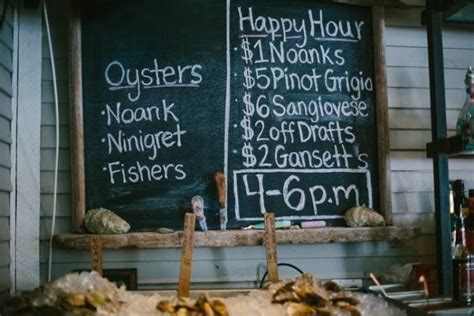 Oysters
· Noank
· Ninigret
· Fishers
Happy Hour
· $1 Noanks
· $5 Pinot Grigio
· $6 Sangiovese
· $2 off Drafts
· $2 Gansett's
4-6 p.m